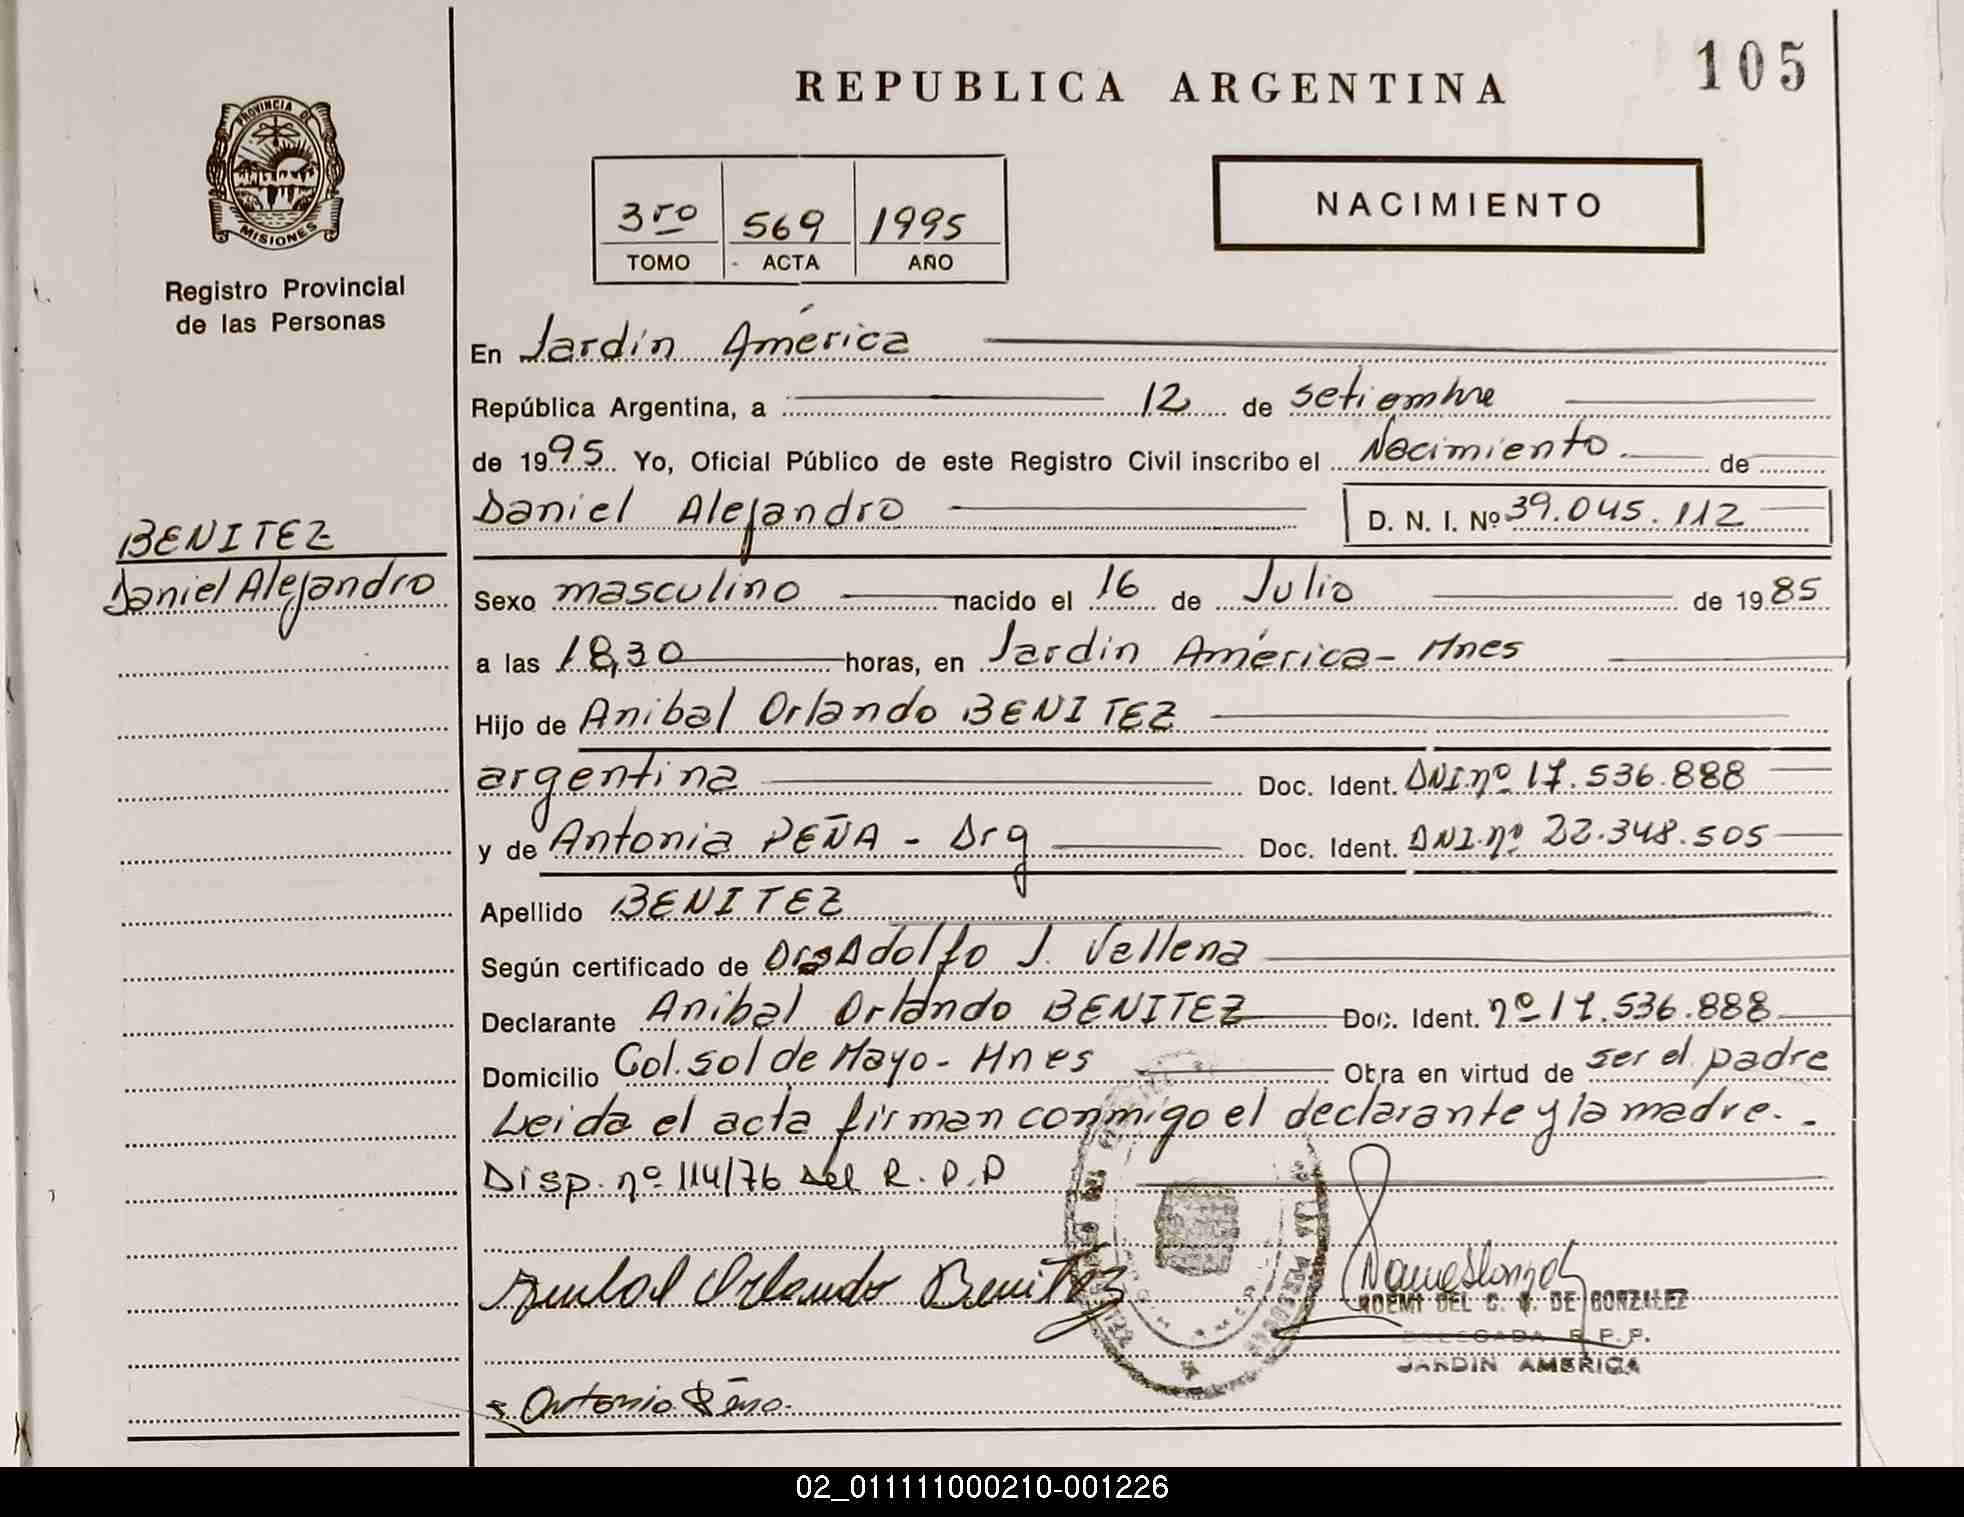 105
REPUBLICA ARGENTINA
PROVINCIA DE
MISIONES
Registro Provincial
de las Personas
3ro 569 1995
TOMO ACTA AÑO
NACIMIENTO
En Jardín América
República Argentina, a 12 de setiembre
de 1995. Yo, Oficial Público de este Registro Civil inscribo el Nacimiento de
Daniel Alejandro D. N. I. Nº 39.045.112
BENITEZ
Daniel Alejandro
Sexo masculino nacido el 16 de Julio de 1985
a las 18,30 horas, en Jardín América - Mnes
Hijo de Anibal Orlando BENITEZ
argentina Doc. Ident. DNI. nº 17.536.888
y de Antonia PEÑA - Arg Doc. Ident. DNI. nº 22.348.505
Apellido BENITEZ
Según certificado de Adolfo J. Vellena
Declarante Anibal Orlando BENITEZ Doc. Ident. nº 17.536.888
Domicilio Col. sol de Mayo - Mnes Obra en virtud de ser el padre
Leida el acta firman conmigo el declarante y la madre.
Disp. nº 114/76 del R.P.P
Anibal Orlando Benitez
NOEMI DEL C. V. DE GONZALEZ
DELEGADA R. P. P.
JARDIN AMERICA
Antonia Peña.
02_011111000210-001226